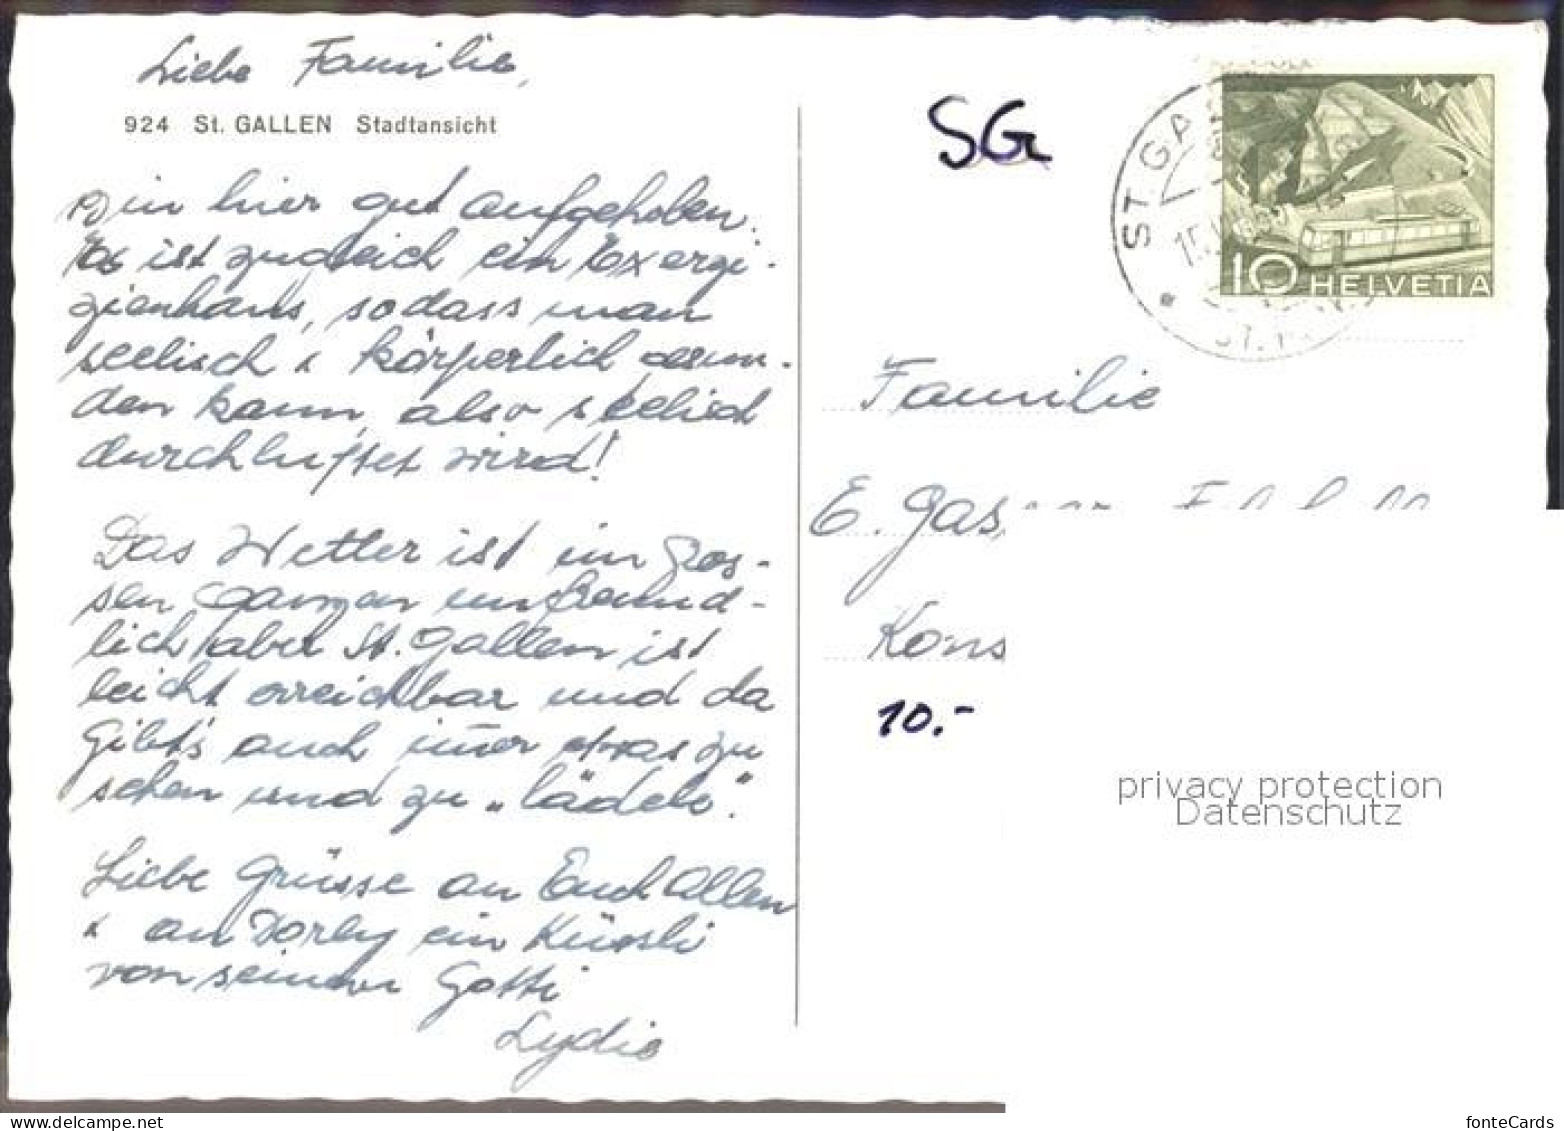 Liebe Familie,
924 St. GALLEN Stadtansicht
Bin hier gut aufgehoben.
Es ist zugleich ein Exerzi-
zienhaus, sodass man
seelisch & körperlich gesun-
den kann, also seelisch
durchlüftet wird!
Das Wetter ist im Gros-
sen Ganzen unfreund-
lich, aber St. Gallen ist
leicht erreichbar und da
Gibt's auch im̄er etwas zu
sehen und zu „lädele".
Liebe Grüsse an Euch Allen
& an Dorly ein Küssli
von seiner Gotti
Lydie
SG
ST. GA
10 HELVETIA
Familie
E.
10.-
privacy protection
Datenschutz
www.delcampe.net
fonteCards